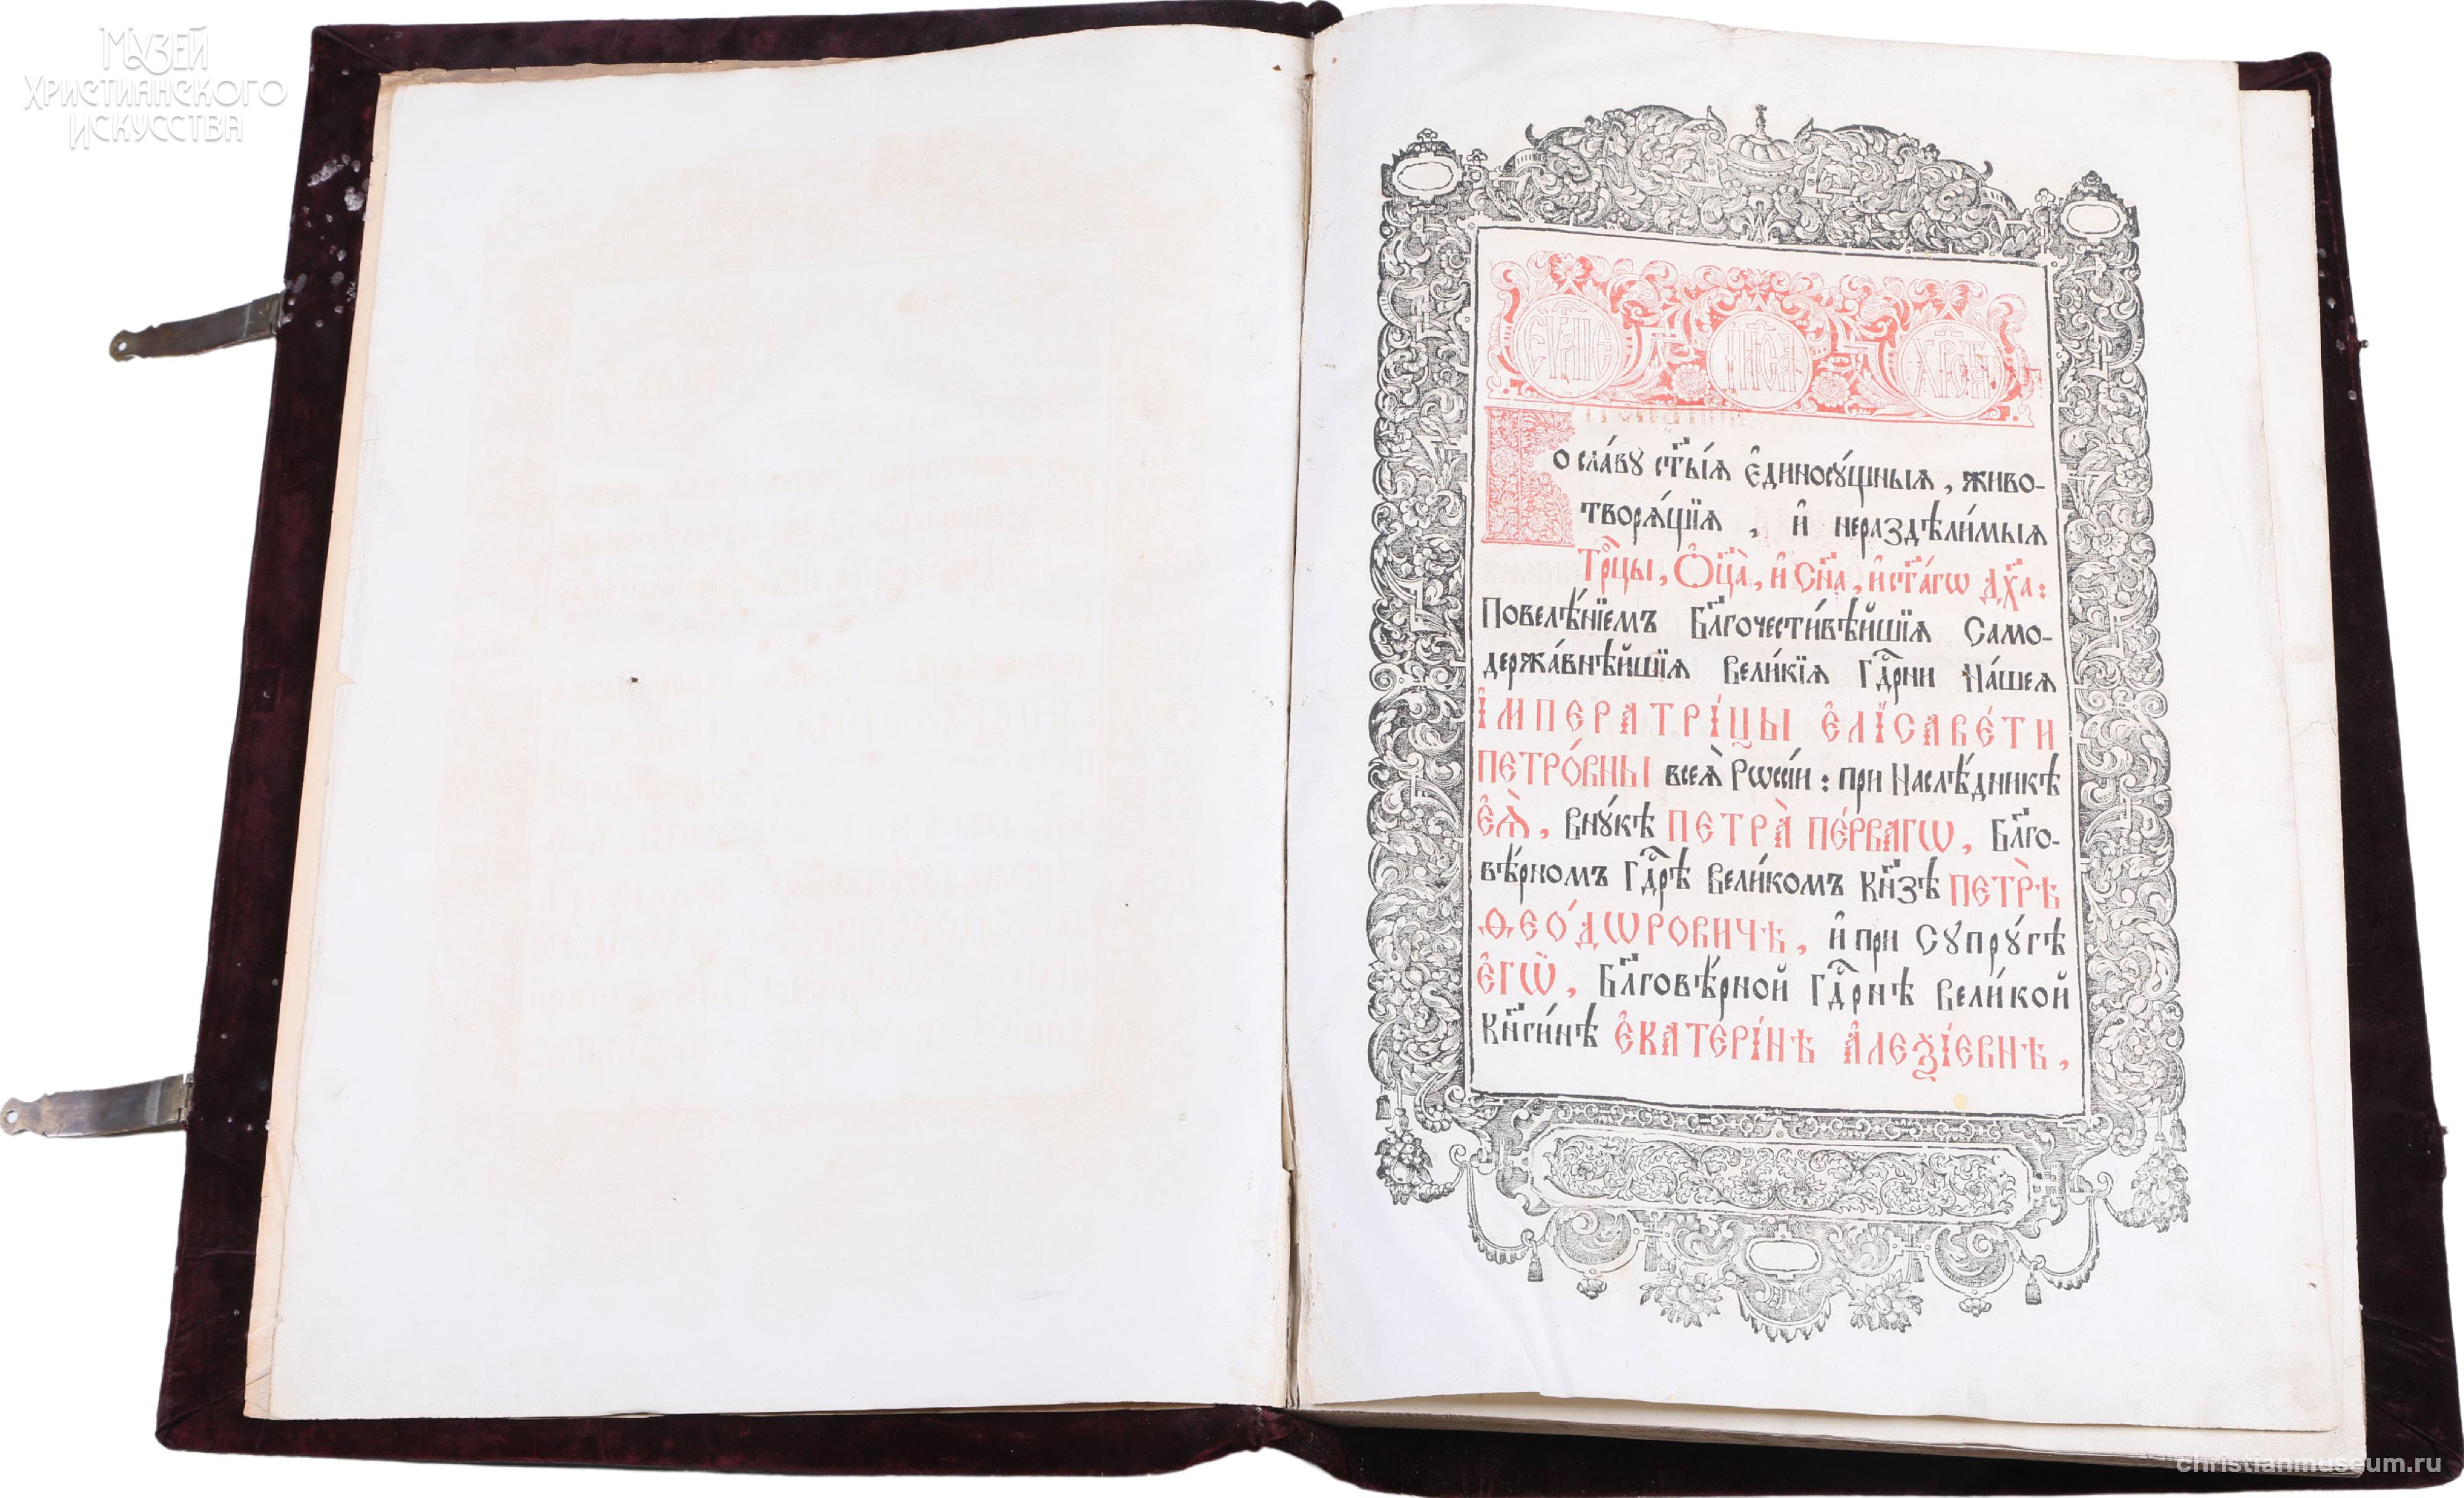 Музей
Христианского
Искусства
ЕѴ҃ЛIЕ IИ҃СА ХР҃ТА
Во сла́вꙋ ст҃ы́ѧ є҆диносꙋ́щныѧ, живо-
творѧ́щїѧ, и҆ нераздѣли́мыѧ
Трⷪ҇цы, Ѻ҆ц҃а̀, и҆ Сн҃а, и҆ ст҃а́гѡ дх҃а:
Повелѣ́нїемъ Бл҃гочести́вѣйшїѧ Само-
держа́внѣйшїѧ Вели́кїѧ Гдⷭ҇рни На́шеѧ
І҆МПЕРАТРІ́ЦЫ Є҆ЛІСАВЕ́ТИ
ПЕТРО́ВНЫ всеѧ̀ Рѡссі́и: при Наслѣ́дникѣ
Є҆Ѧ̀, Внꙋ́кѣ ПЕТРА̀ ПЕ́РВАГѠ, Бл҃го-
вѣ́рномъ Гдⷭ҇рѣ Вели́комъ Кн҃зѣ ПЕТРѢ̀
Ѳ̾ЕО́ДѠРОВИЧѢ, и҆ при Сꙋпрꙋ́гѣ
Є҆ГѠ̀, Бл҃говѣ́рной Гдⷭ҇рнѣ Вели́кой
Кн҃ги́нѣ Є҆КАТЕРІ́НѢ А҆ЛЕѮІ́ЕВНѢ,
christianmuseum.ru